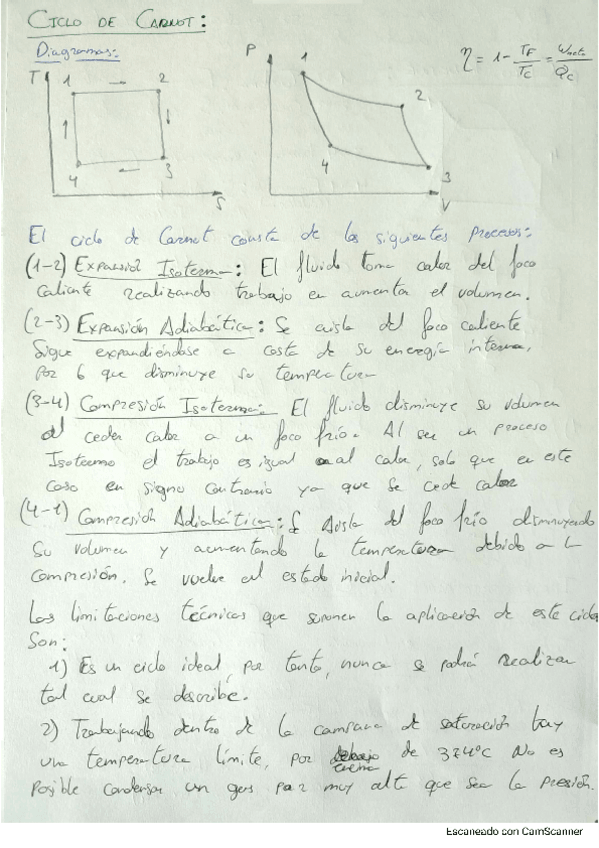 CICLO DE CARNOT:
Diagramas:
T
1
2
3
4
S
P
1
2
3
4
V
η = 1 - TF/TC = Wneto/QC
El ciclo de Carnot consta de los siguientes procesos:
(1-2) Expansión Isoterma: El fluido toma calor del foco
caliente realizando trabajo en aumentar el volumen.
(2-3) Expansión Adiabática: Se aisla del foco caliente
Sigue expandiéndose a costa de su energía interna,
por lo que disminuye su temperatura
(3-4) Compresión Isoterma: El fluido disminuye su volumen
al ceder calor a un foco frío. Al ser un proceso
Isotermo el trabajo es igual al calor, solo que en este
caso en signo contrario ya que se cede calor
(4-1) Compresión Adiabática: Se Aisla del foco frío disminuyendo
su volumen y aumentando la temperatura debido a la
compresión. Se vuelve al estado inicial.
Las limitaciones técnicas que suponen la aplicación de este ciclo
son:
1) Es un ciclo ideal, por tanto, nunca se podrá realizar
tal cual se describe.
2) Trabajando dentro de la campana de saturación hay
una temperatura límite, por encima de 374ºC No es
posible condensar un gas por muy alta que sea la presión.
Escaneado con CamScanner